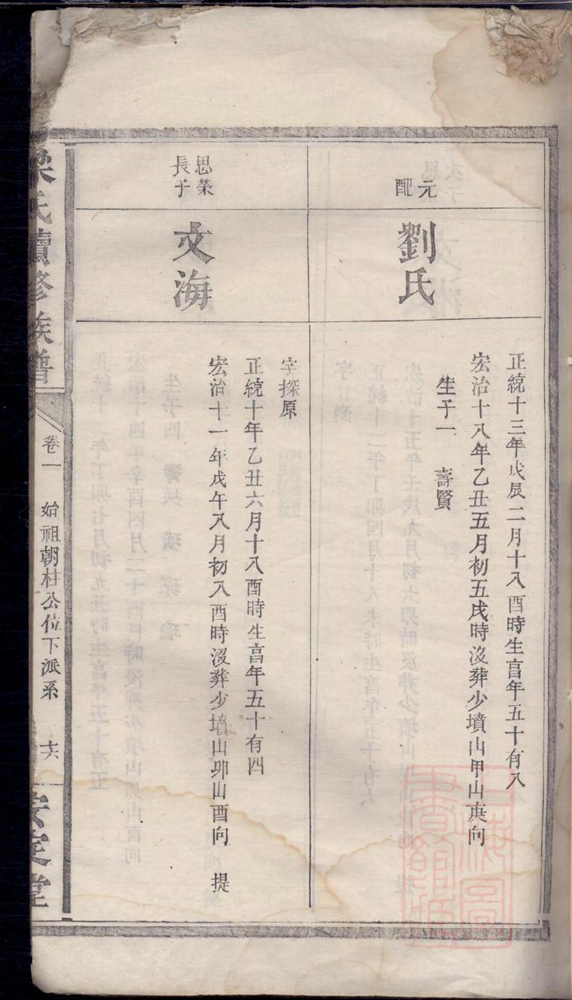 元配
劉氏
正統十三年戊辰二月十八酉時生享年五十有八
宏治十八年乙丑五月初五戌時沒葬少墳山甲山庚向
生子一 壽賢
思榮長子
文海
字探原
正統十年乙丑六月十八酉時生享年五十有四
宏治十一年戊午八月初八酉時沒葬少墳山卯山酉向 提
梁氏續修族譜
卷一 始祖朝柱公位下派系 十六
安定堂
上海圖書館藏